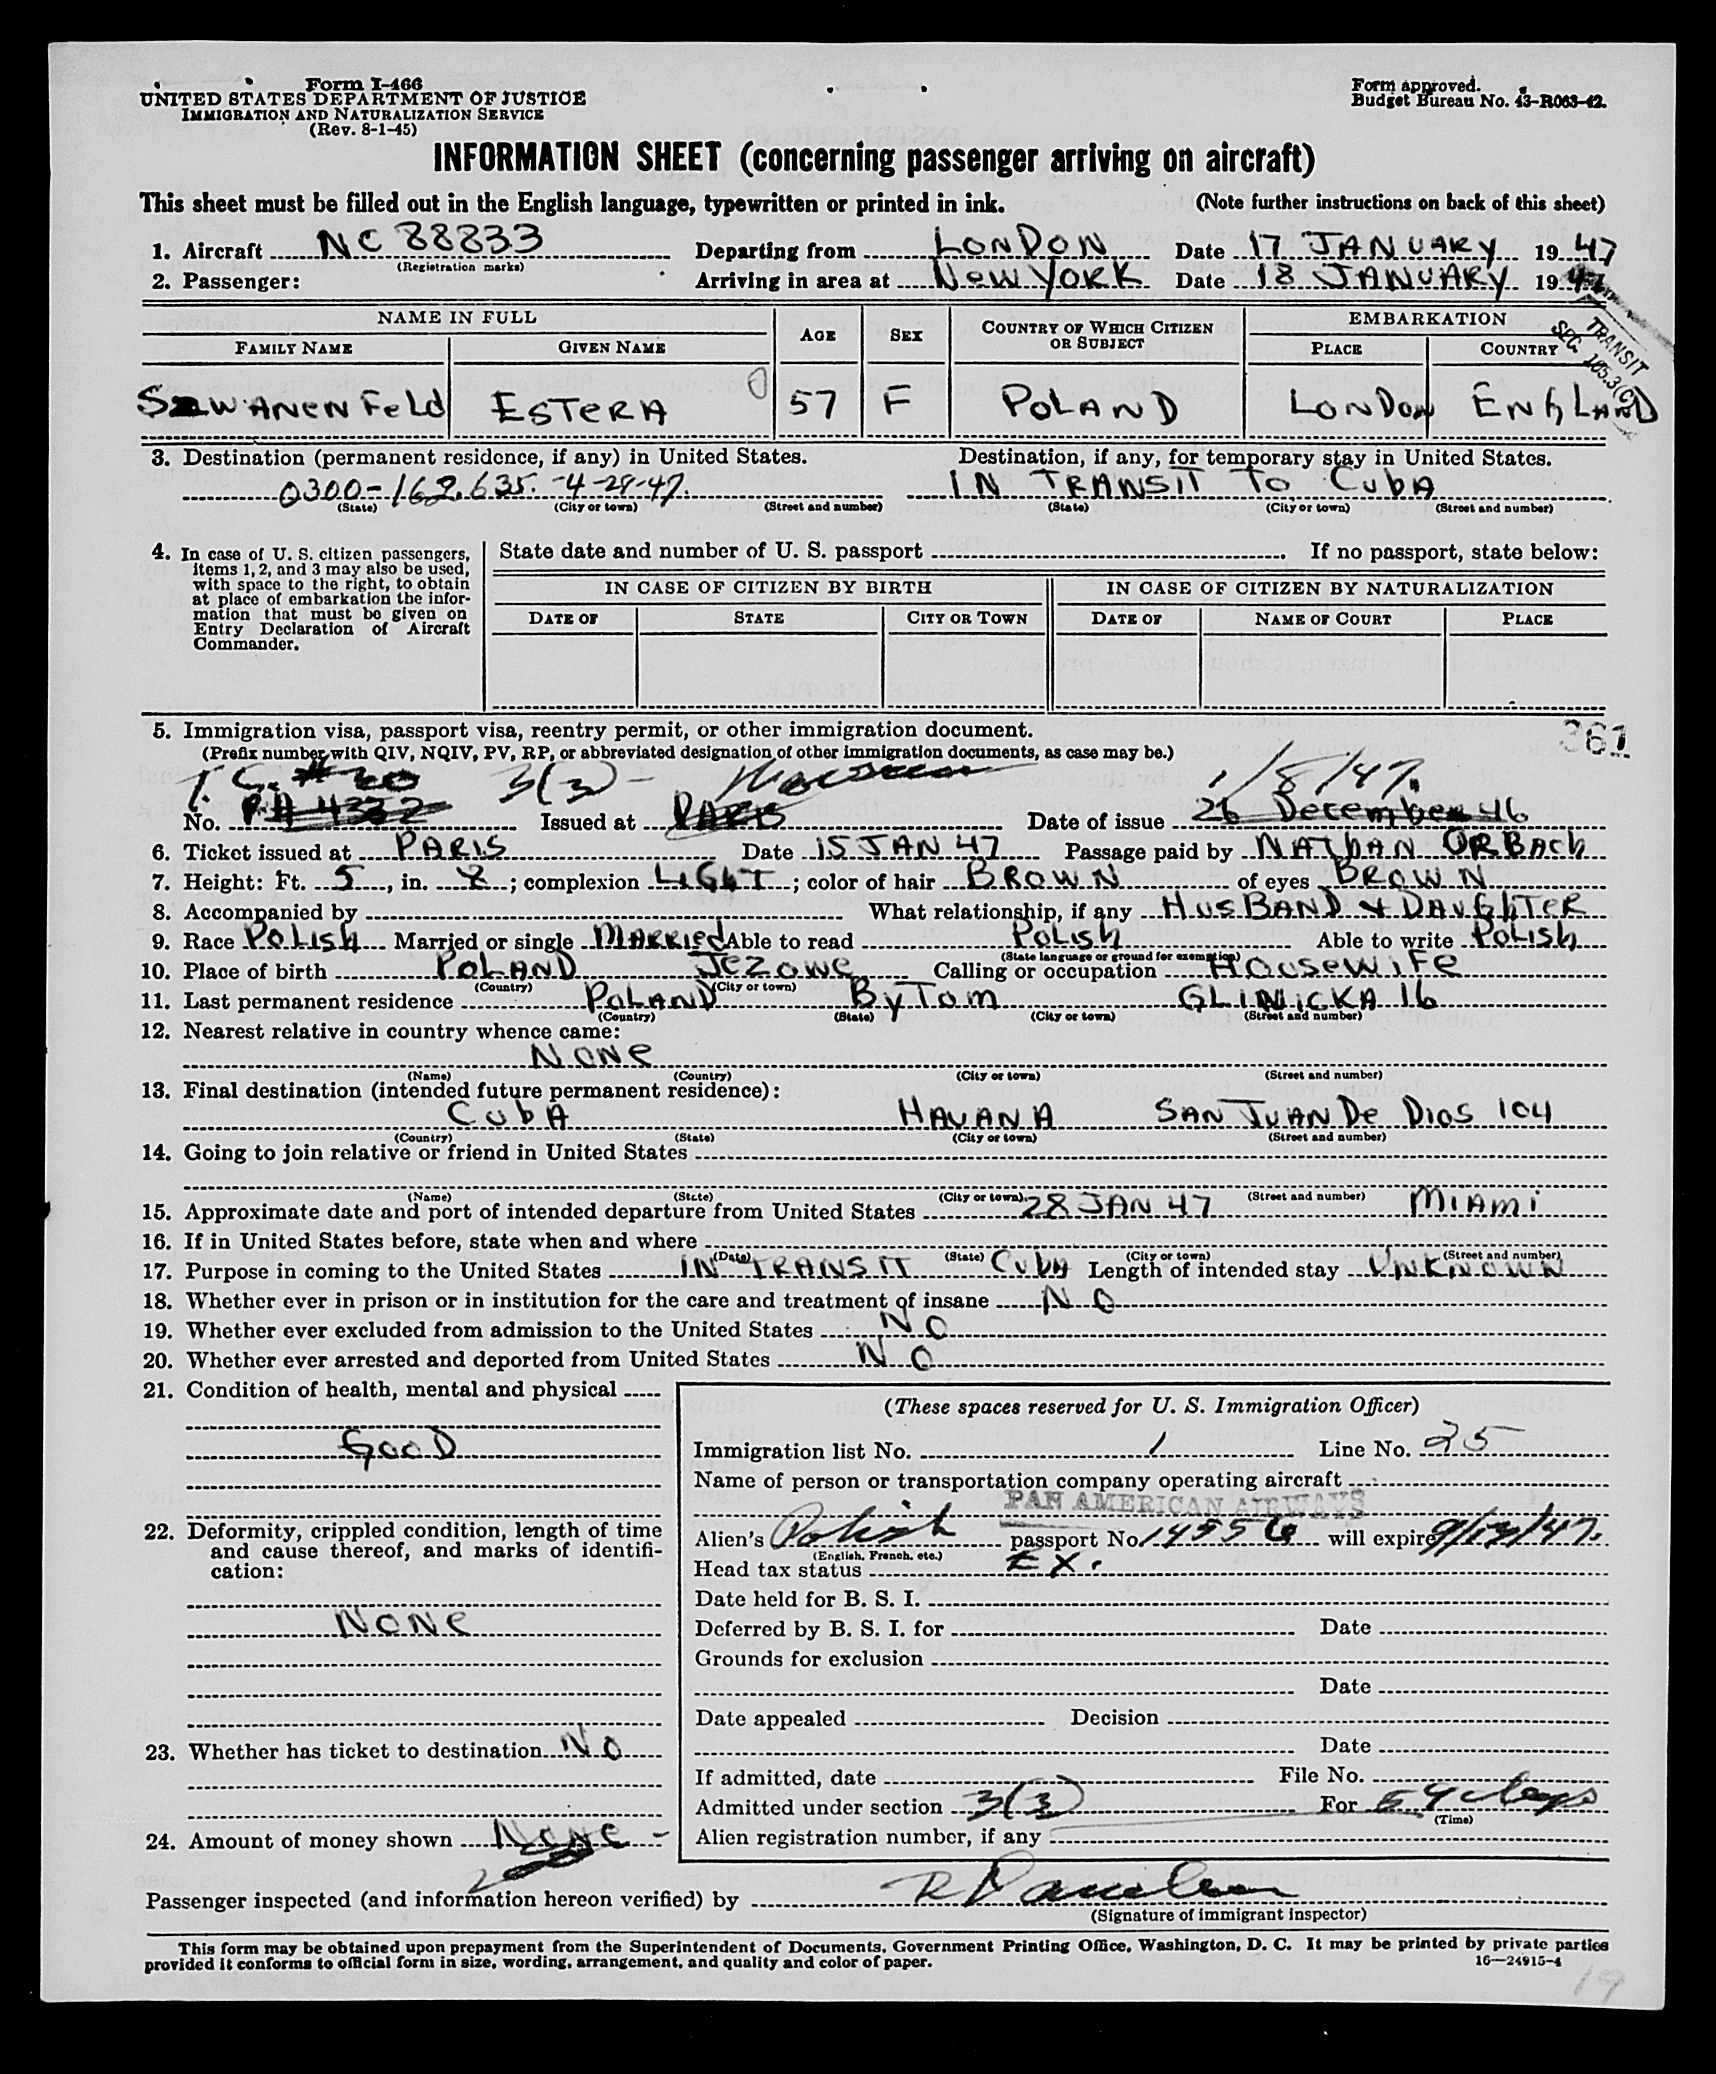 Form I-466
UNITED STATES DEPARTMENT OF JUSTICE
IMMIGRATION AND NATURALIZATION SERVICE
(Rev. 8-1-45)
Form approved.
Budget Bureau No. 43-R063-42.
INFORMATION SHEET (concerning passenger arriving on aircraft)
This sheet must be filled out in the English language, typewritten or printed in ink. (Note further instructions on back of this sheet)
1. Aircraft NC 88833 Departing from LONDON Date 17 JANUARY 1947
(Registration marks)
2. Passenger: Arriving in area at NEW YORK Date 18 JANUARY 1947
TRANSIT
SEC. 105.3(C)
NAME IN FULL AGE SEX COUNTRY OF WHICH CITIZEN OR SUBJECT EMBARKATION
FAMILY NAME GIVEN NAME PLACE COUNTRY
SZWANENFELD ESTERA 57 F POLAND LONDON ENGLAND
3. Destination (permanent residence, if any) in United States. Destination, if any, for temporary stay in United States.
0300-162,635. -4-29-47. IN TRANSIT TO CUBA
(State) (City or town) (Street and number) (State) (City or town) (Street and number)
4. In case of U. S. citizen passengers, items 1, 2, and 3 may also be used, with space to the right, to obtain at place of embarkation the information that must be given on Entry Declaration of Aircraft Commander.
State date and number of U. S. passport If no passport, state below:
IN CASE OF CITIZEN BY BIRTH IN CASE OF CITIZEN BY NATURALIZATION
DATE OF STATE CITY OR TOWN DATE OF NAME OF COURT PLACE
5. Immigration visa, passport visa, reentry permit, or other immigration document.
361
(Prefix number with QIV, NQIV, PV, RP, or abbreviated designation of other immigration documents, as case may be.)
T.C. #20 3(3)- 1/8/47.
No. PA 4332 Issued at PARIS Date of issue 26 December 46
6. Ticket issued at PARIS Date 15 JAN 47 Passage paid by NATHAN ORBACH
7. Height: Ft. 5, in. 2; complexion LIGHT; color of hair BROWN of eyes BROWN
8. Accompanied by What relationship, if any HUSBAND & DAUGHTER
9. Race POLISH Married or single MARRIED Able to read POLISH Able to write POLISH
(State language or ground for exemption)
10. Place of birth POLAND JEZOWE Calling or occupation HOUSEWIFE
(Country) (City or town)
11. Last permanent residence POLAND BYTOM GLINICKA 16
(Country) (State) (City or town) (Street and number)
12. Nearest relative in country whence came:
NONE
(Name) (Country) (City or town) (Street and number)
13. Final destination (intended future permanent residence):
CUBA HAVANA SAN JUAN DE DIOS 104
(Country) (State) (City or town) (Street and number)
14. Going to join relative or friend in United States
(Name) (State) (City or town) (Street and number)
15. Approximate date and port of intended departure from United States 28 JAN 47 MIAMI
16. If in United States before, state when and where
(Date) (State) (City or town) (Street and number)
17. Purpose in coming to the United States IN TRANSIT CUBA Length of intended stay UNKNOWN
18. Whether ever in prison or in institution for the care and treatment of insane NO
19. Whether ever excluded from admission to the United States NO
20. Whether ever arrested and deported from United States NO
21. Condition of health, mental and physical
GOOD
22. Deformity, crippled condition, length of time and cause thereof, and marks of identification:
NONE
23. Whether has ticket to destination NO
24. Amount of money shown NONE
(These spaces reserved for U. S. Immigration Officer)
Immigration list No. 1 Line No. 25
Name of person or transportation company operating aircraft
PAN AMERICAN AIRWAYS
Alien's Polish passport No. 14556 will expire 9/13/47.
(English, French, etc.)
Head tax status EX.
Date held for B. S. I.
Deferred by B. S. I. for Date
Grounds for exclusion
Date
Date appealed Decision
Date
If admitted, date File No.
Admitted under section 3(3) For days
(Time)
Alien registration number, if any
Passenger inspected (and information hereon verified) by
(Signature of immigrant inspector)
This form may be obtained upon prepayment from the Superintendent of Documents, Government Printing Office, Washington, D. C. It may be printed by private parties
provided it conforms to official form in size, wording, arrangement, and quality and color of paper. 16—24915-4
19